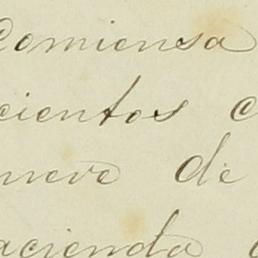 Comiensa
cientos c
nueve de
acienda